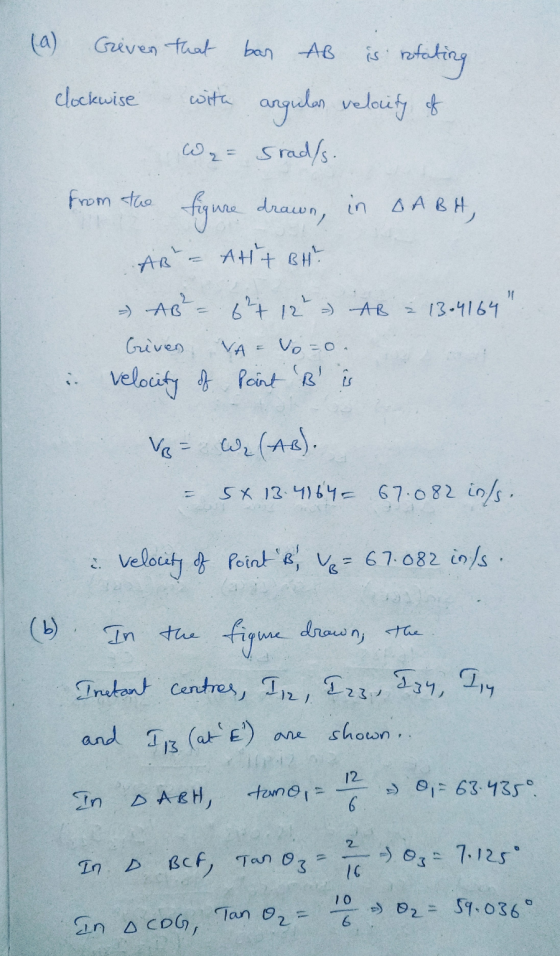 (a) Given that bar AB is rotating
clockwise with angular velocity of
ω₂ = 5 rad/s.
From the figure drawn, in △ABH,
AB² = AH² + BH².
⇒ AB² = 6² + 12² ⇒ AB = 13.4164"
Given VA = VD = 0.
∴ Velocity of Point 'B' is
VB = ω₂(AB).
= 5 × 13.4164 = 67.082 in/s.
∴ Velocity of Point 'B', VB = 67.082 in/s.
(b). In the figure drawn, the
Instant centres, I12, I23, I34, I14
and I13 (at 'E') are shown..
In △ABH, tanθ₁ = 12/6 ⇒ θ₁ = 63.435°.
In △ BCF, Tan θ₃ = 2/16 ⇒ θ₃ = 7.125°
In △CDG, Tan θ₂ = 10/6 ⇒ θ₂ = 59.036°